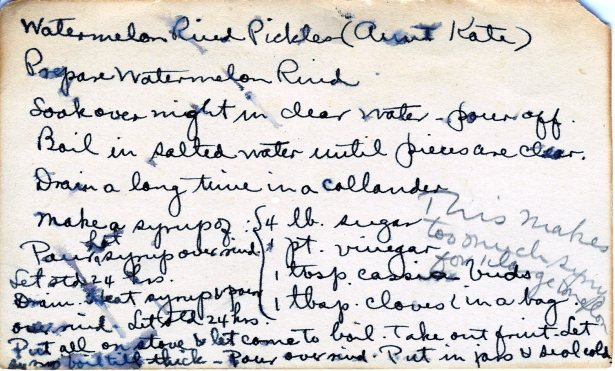 Watermelon Rind Pickles (Aunt Kate)
Prepare Watermelon Rind
Soak over night in clear water - pour off.
Boil in salted water until pieces are clear.
Drain a long time in a collander
Make a syrup of: { 4 lb. sugar
Pour hot syrup over rind 1 pt. vinegar
Let std 24 hrs. 1 tbsp. cassia buds
Drain. Heat syrup & pour 1 tbsp. cloves (in a bag.
over rind Let std 24 hrs.
Put all on stove & let come to boil. Take out fruit. Let
syrup boil till thick - Pour over rind. Put in jars & seal cold.
This makes
too much syrup
for 1 large